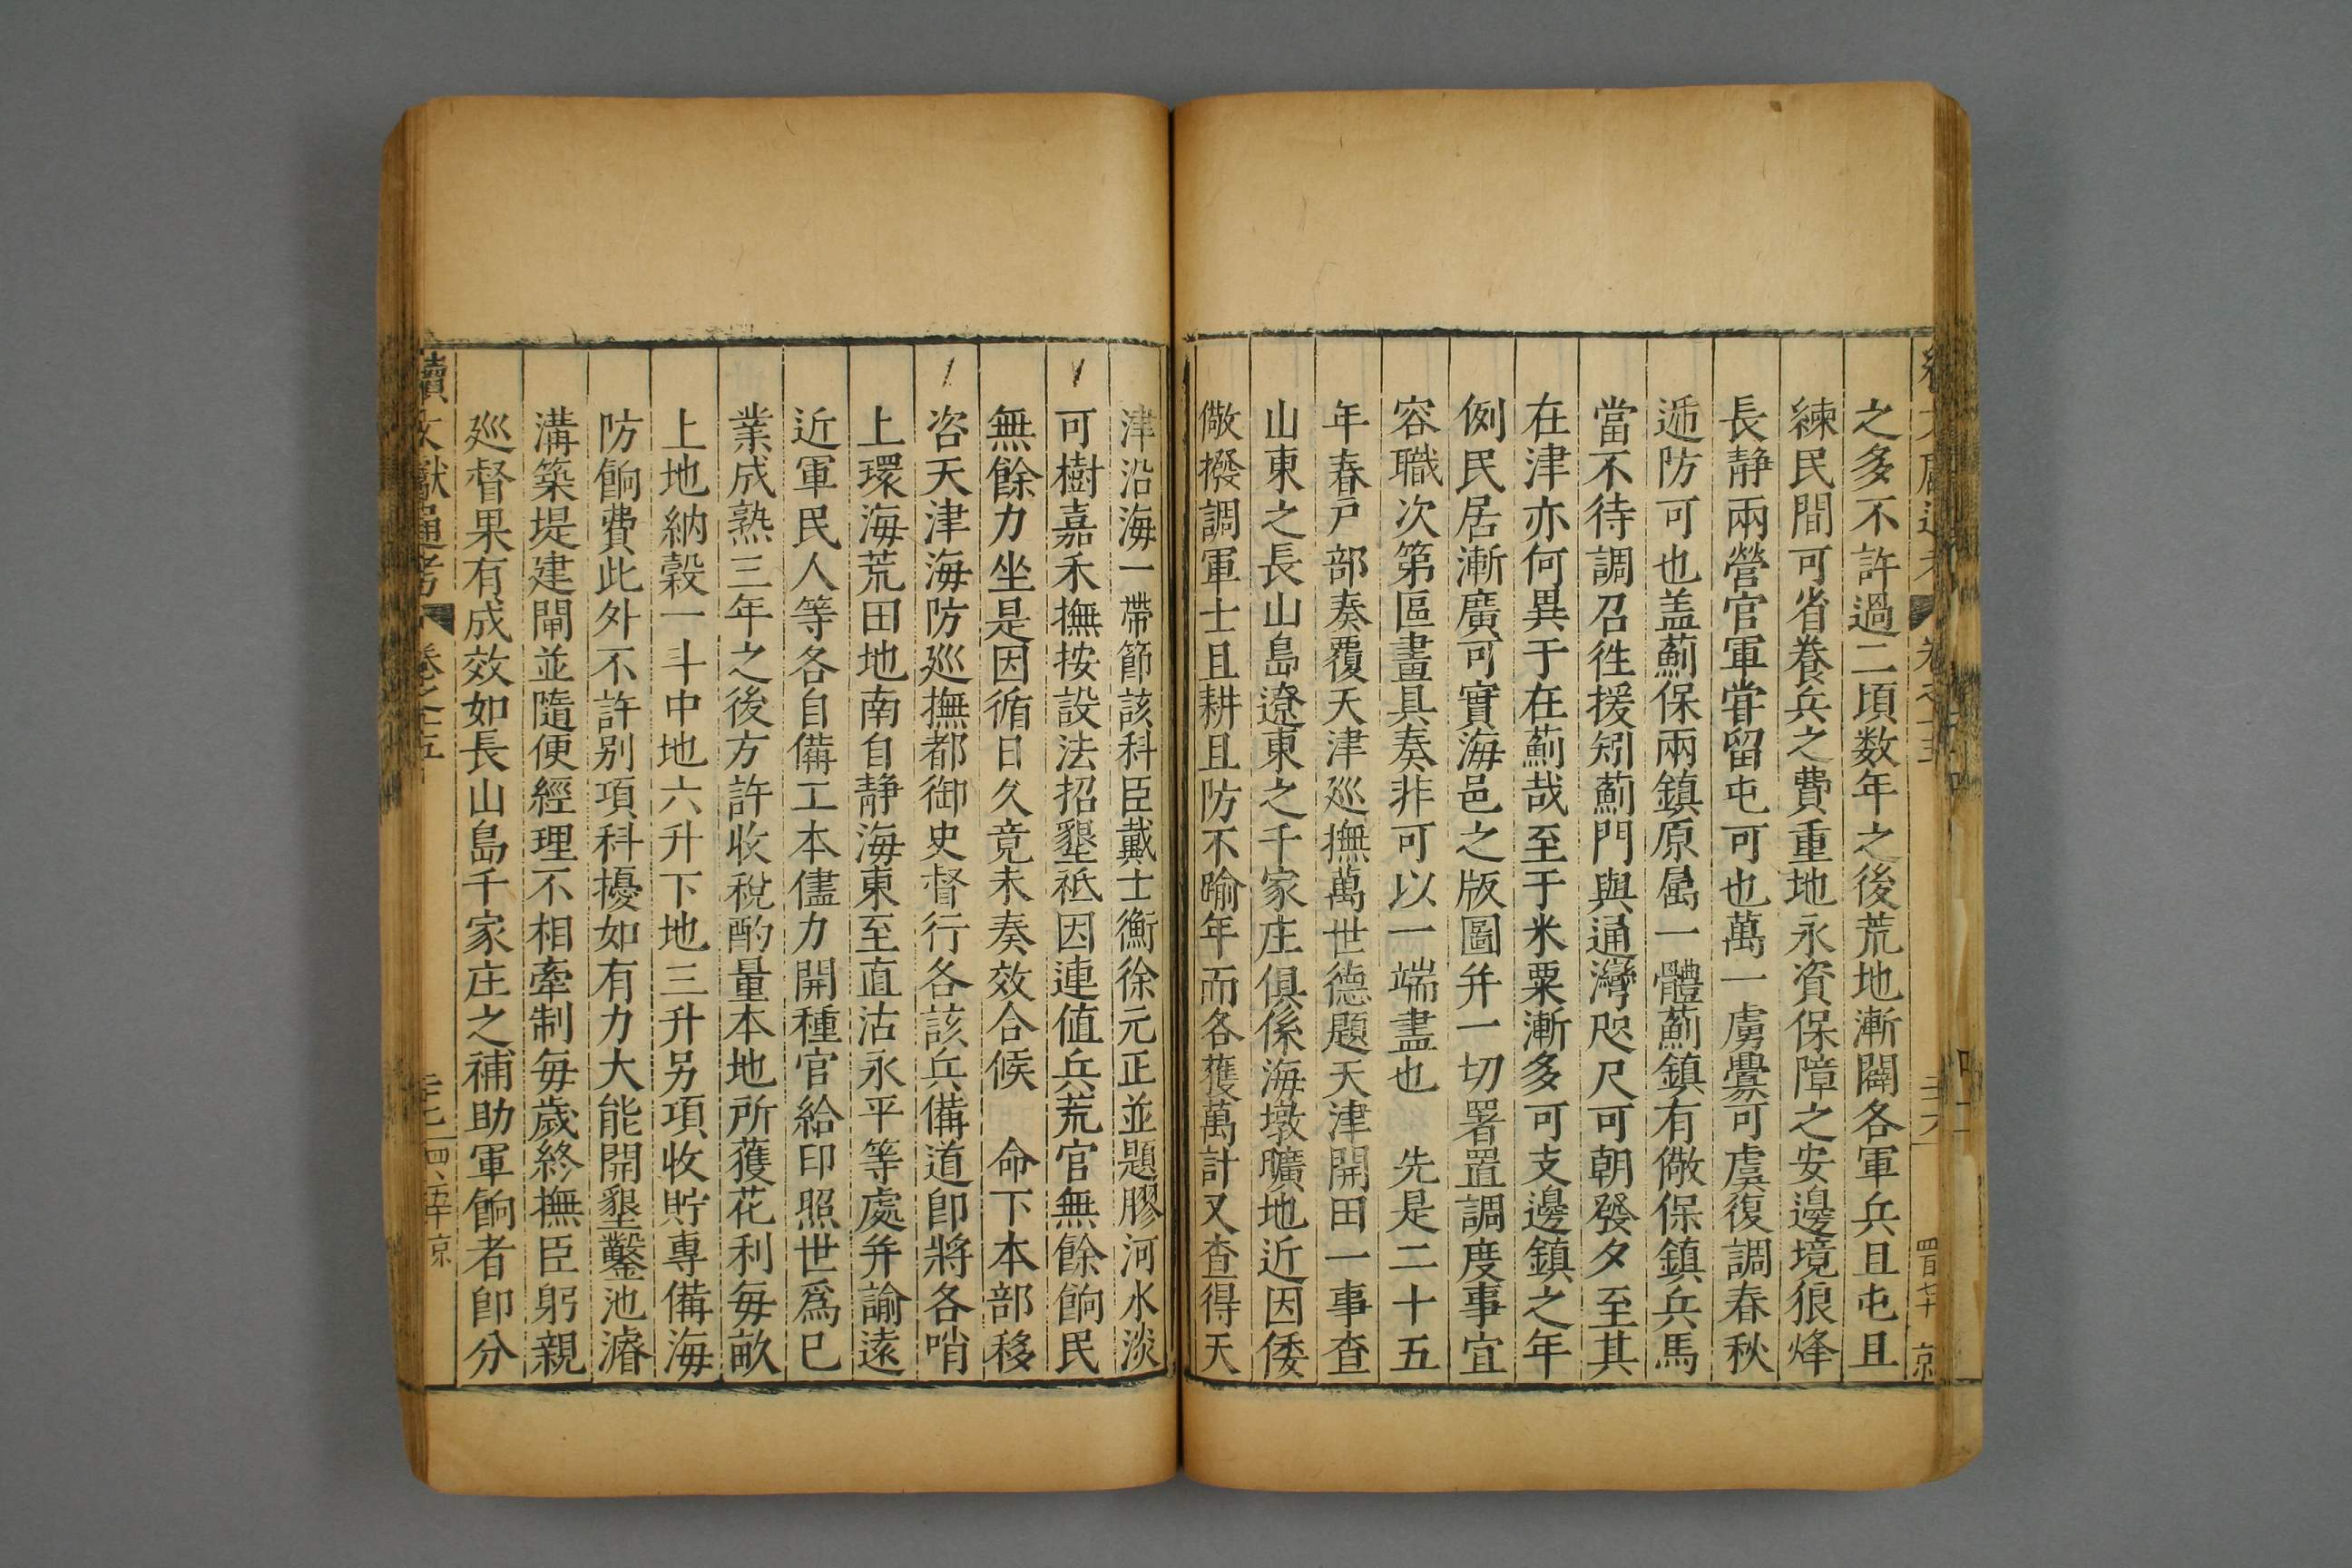 之多不許過二頃数年之後荒地漸闢各軍兵且屯且
練民間可省養兵之費重地永資保障之安邊境狼烽
長静兩營官軍甞留屯可也萬一虜釁可虞復調春秋
逓防可也盖薊保兩鎮原属一體薊鎮有儆保鎮兵馬
當不待調召徃援矧薊門與通灣咫尺可朝發夕至其
在津亦何異于在薊哉至于米粟漸多可支邊鎮之年
例民居漸廣可實海邑之版圖并一切署置調度事宜
容職次第區畫具奏非可以一端盡也　先是二十五
年春戸部奏覆天津廵撫萬世德題天津開田一事查
山東之長山島遼東之千家庄俱係海墩曠地近因倭
儆撥調軍士且耕且防不踰年而各獲萬計又查得天
津沿海一帶節該科臣戴士衡徐元正並題膠河水淡
可樹嘉禾撫按設法招墾祗因連值兵荒官無餘餉民
無餘力坐是因循日久竟未奏效合候　命下本部移
咨天津海防廵撫都御史督行各該兵備道卽將各哨
上環海荒田地南自静海東至直沽永平等處并諭遠
近軍民人等各自備工本儘力開種官給印照世爲已
業成熟三年之後方許收稅酌量本地所獲花利每畝
上地納穀一斗中地六升下地三升另項收貯專備海
防餉費此外不許别項科擾如有力大能開墾鑿池濬
溝築堤建閘並隨便經理不相牽制每歲終撫臣躬親
廵督果有成效如長山島千家庄之補助軍餉者卽分
續文獻通考　卷之十五